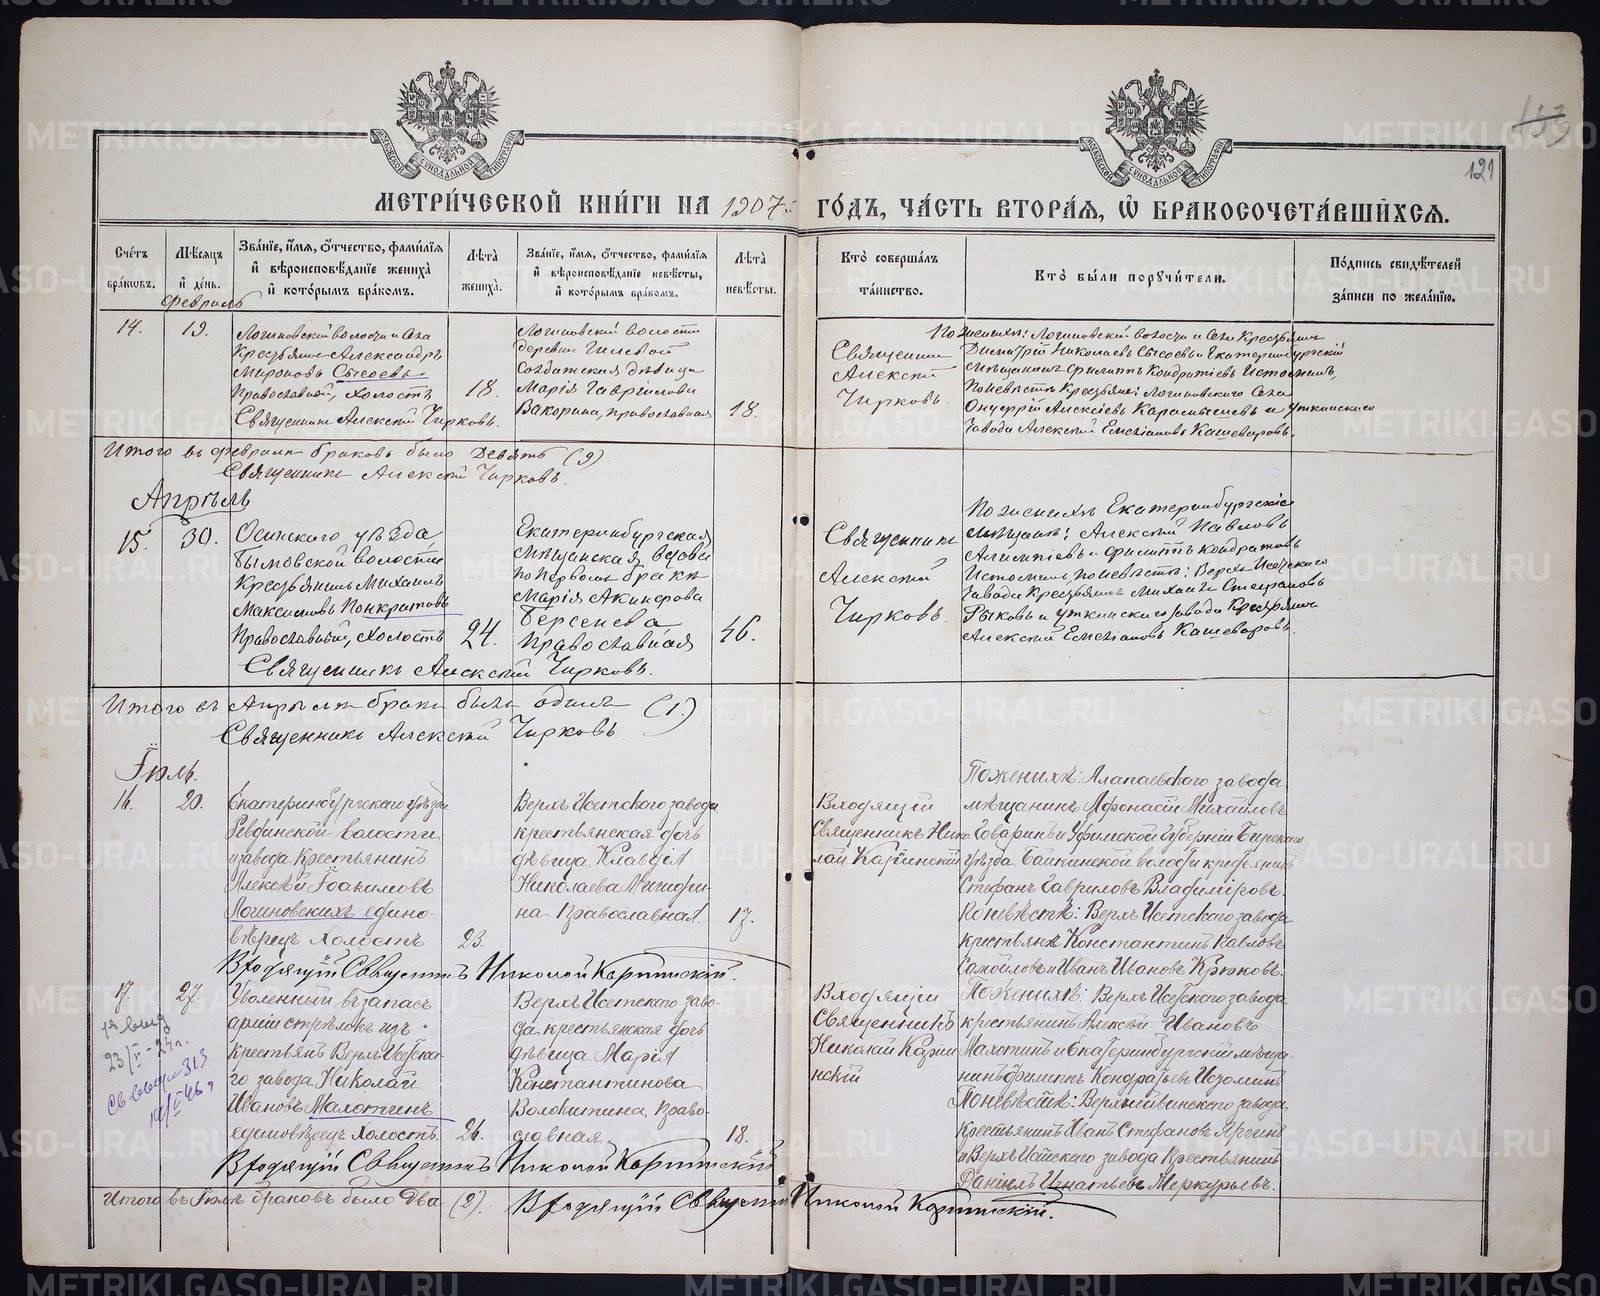 МЕТРИ́ЧЕСКОЙ КНИ́ГИ НА 1907 ГО́ДЪ, ЧА́СТЬ ВТОРА́Я, Ѡ БРАКОСОЧЕТА́ВШИХСЯ.
121
Сче́тъ бра́кѡвъ.
Мѣ́сяцъ и́ де́нь.
Зва́нїе, и́мя, ѻ́тчество, фами́лїя и́ вѣроисповѣ́данїе жениха̀ и́ кото́рымъ бра́комъ.
Лѣ́та жениха̀.
Зва́нїе, и́мя, ѻ́тчество, фами́лїя и́ вѣроисповѣ́данїе невѣ́сты, и́ кото́рымъ бра́комъ.
Лѣ́та невѣ́сты.
Кто̀ соверша́лъ та́инство.
Кто̀ бы́ли порꙋчи́тели.
По́дпись свидѣ́телей за́писи по жела́нїю.
Февраль
14.
19.
Логиновской волости и села
Крестьянинъ Александръ
Мироновъ Сысоевъ
Православный, холостъ
18.
Священникъ Алексей Чирковъ.
Логиновской волости
деревни Гилевой
Солдатская дѣвица
Марія Гаврилова
Вакорина, православная
18.
Священник
Алексей
Чирковъ.
По женихѣ: Логиновской волости и села Крестьянин
Димитрій Николаевъ Сысоевъ и Екатеринбургскій
Мѣщанинъ Филиппъ Кондратіевъ Истоминъ,
По невѣстѣ Крестьяне: Логиновского села
и Уткинского
завода Алексей Емельяновъ Кашеваровъ.
Итого въ феврале браковъ было девять (9)
Священникъ Алексей Чирковъ.
Апрѣль
15.
30.
Осинского уѣзда
Бымовской волости
Крестьянинъ Михаилъ
Максимовъ Понкратовъ
Православный, холостъ
24.
Священникъ Алексей Чирковъ.
Екатеринбургская
мѣщанская вдова
по первомъ бракѣ
Марія Акинфова
Берсенева
Православная
46.
Священник
Алексей
Чирковъ.
По женихѣ Екатеринбургскіе
мѣщане: Алексей Павловъ
и Филиппъ Кондратовъ
Истоминъ, по невѣстѣ: Верхъ Исетского
завода Крестьянинъ Михаилъ Стефановъ
Рыковъ и Уткинского завода Крестьянин
Алексей Емельяновъ Кашеваровъ.
Итого въ Апрѣлѣ браки были одинъ (1.)
Священникъ Алексей Чирковъ
Іюль.
16.
20.
Екатеринбургскаго уѣзда
Ревдинской волости
и завода Крестьянинъ
Алексѣй Іоакимовъ
Логиновскихъ едино-
вѣрецъ холостъ
23.
Верхъ Исетскаго завода
крестьянская дочь
дѣвица Клавдія
Николаева
на Православная.
17.
Входящій
Священникъ Нико
лай Карпинскій
По женихѣ: Алапаевского завода
мѣщанинъ Афонасій Михайловъ
Товаринъ и Уфимской губерніи Бирскаго
уѣзда Байкинской волости крестьянинъ
Стефанъ Гавриловъ Владиміровъ.
По невѣстѣ: Верхъ Исетскаго завода
крестьяне Константинъ Павловъ
Самойловъ и Иванъ Ивановъ Крюковъ.
Входящій Священникъ Николай Карпинскій.
17.
27.
Уволенный въ запасъ
арміи стрѣлокъ изъ
крестьянъ Верхъ Исетска-
го завода Николай
Ивановъ Махоткинъ
единовѣрецъ холостъ.
26.
Верхъ Исетскаго заво-
да крестьянская дочь
дѣвица Марія
Константинова
Волокитина, Право-
славная
18.
Входящій
Священникъ
Николай Карпи
нскій
По женихѣ: Верхъ Исетскаго завода
крестьянинъ Алексѣй Ивановъ
Махоткинъ и Екатеринбургскій мѣща-
нинъ Филиппъ Кондратьевъ Истоминъ
По невѣстѣ: Верхнейвинскаго завода
крестьянинъ Иванъ Стефановъ
и Верхъ Исетскаго завода Крестьянинъ
Даніилъ Игнатьевъ Меркурьевъ.
Входящій Священникъ Николай Карпинскій
Итого въ Іюлѣ браковъ было два (2). Входящій Священникъ Николай Карпинскій.
METRIKI.GASO-URAL.RU